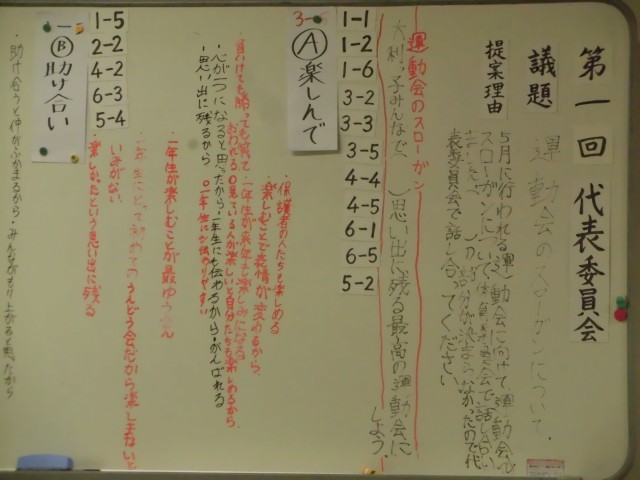 第一回 代表委員会
議題
運動会のスローガンについて.
提案理由
5月に行われる運動会に向けて、運動会の
スローガンについて、体育委員会で話し合い
ましたが、
部分が決まらなかったので代
表委員会で話し合ってください
運動会のスローガン
大利っ子みんなで、
思い出に残る最高の運動会に
しよう
1-1
1-2
1-6
3-2
3-3
3-5
4-4
4-5
6-1
6-5
5-2
3-
Ⓐ 楽しんで
・保護者の人たちも楽しめる
・楽しむことで表情が変わるから
・負けても勝っても笑って
一年生が来年も楽しみになる
おわれる
見ている人が楽しいと自分たちも楽しめるから
・心が一つになると思ったから・一年生にも伝わるから・がんばれる
・思い出に残るから
1-5
2-2
4-2
6-3
5-4
Ⓑ 助け合い
・一年生が楽しむことが最ゆう先
・一年生にとって初めてのうんどう会だから楽しまないと
いみがない
・楽しかったという思い出に残る
・助け合うと仲がふかまるから・みんながもり上がると思ったから